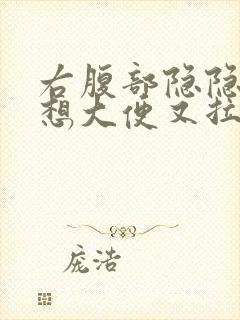 右腹部隐隐
想大便又拉
庞浩